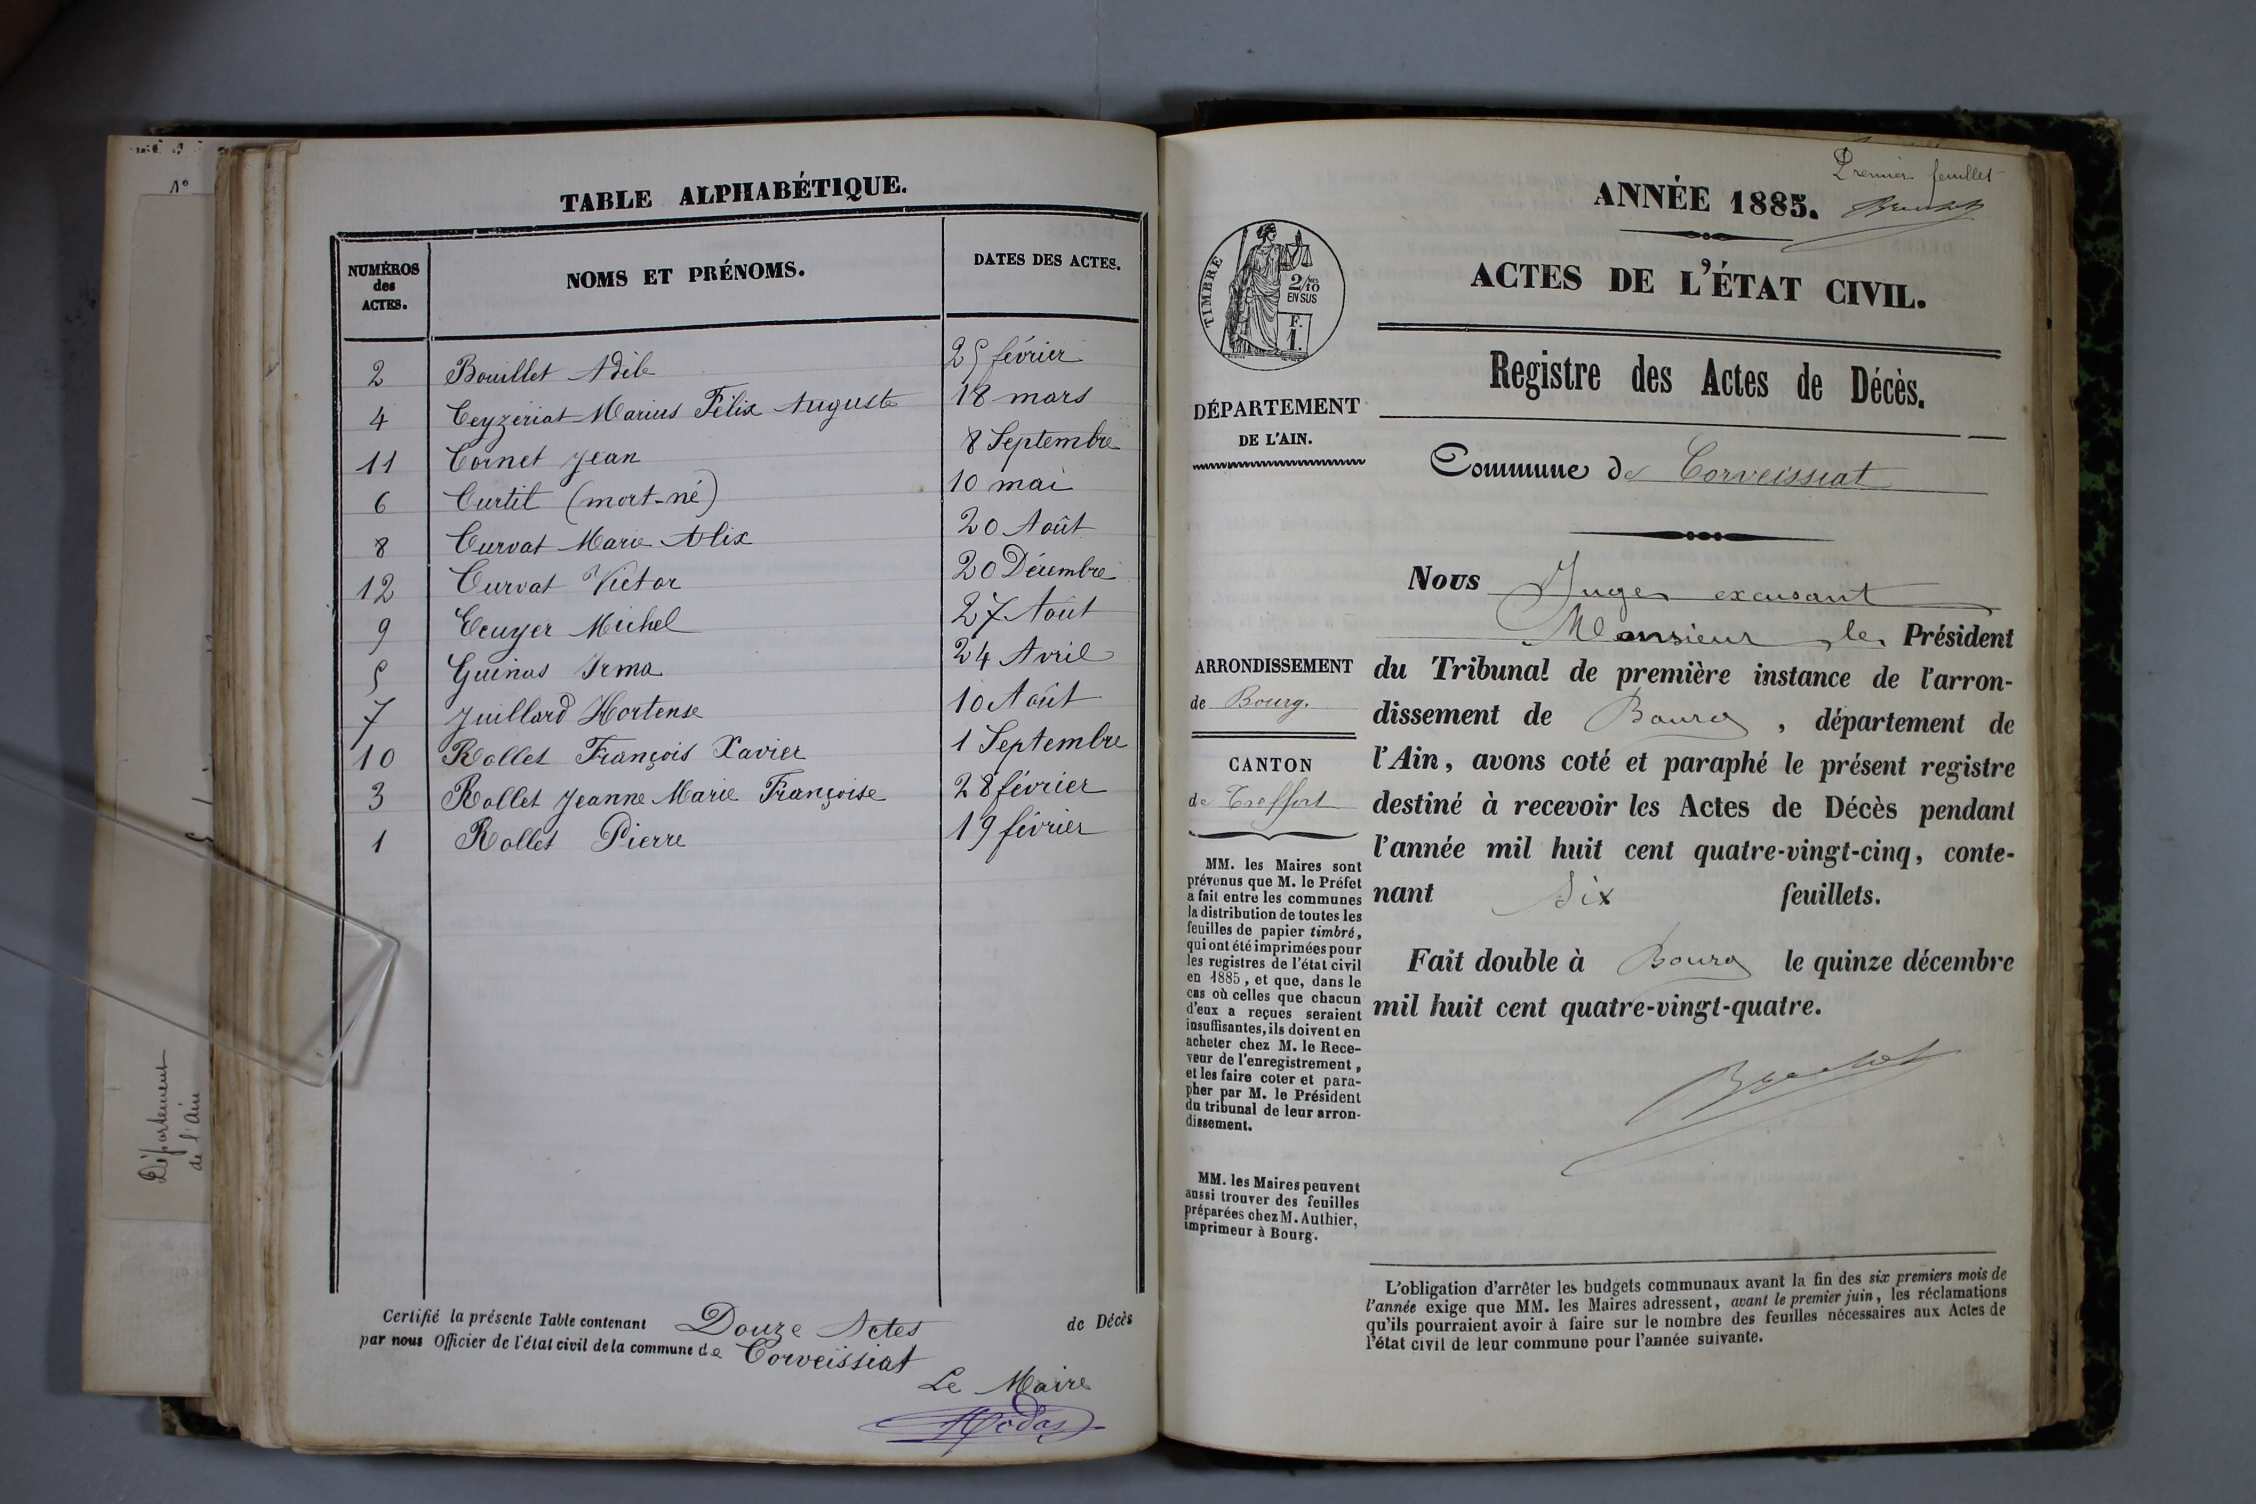 N°
Département
de l'Ain
TABLE ALPHABÉTIQUE.
NUMÉROS
des
ACTES.
NOMS ET PRÉNOMS.
DATES DES ACTES.
2 Bouillet Adèle 25 février
4 Ceyzériat Marius Félix Auguste 18 mars
11 Cornet Jean 8 Septembre
6 Curtil (mort-né) 10 mai
8 Curvat Marie Alix 20 Août
12 Curvat Victor 20 Décembre
9 Ecuyer Michel 27 Août
5 Guinas Irma 24 Avril
7 Juillard Hortense 10 Août
10 Rollet François Xavier 1 Septembre
3 Rollet Jeanne Marie Françoise 28 février
1 Rollet Pierre 19 février
Certifié la présente Table contenant Douze Actes de Décès
par nous Officier de l'état civil de la commune de Corveissiat
Le Maire
Premier feuillet
ANNÉE 1885.
ACTES DE L'ÉTAT CIVIL.
TIMBRE
2/10
EN SUS
F.
1.
Registre des Actes de Décès.
DÉPARTEMENT
DE L'AIN.
Commune de Corveissiat
Nous Juge excusant
Monsieur le Président
du Tribunal de première instance de l'arron-
dissement de Bourg, département de
l'Ain, avons coté et paraphé le présent registre
destiné à recevoir les Actes de Décès pendant
l'année mil huit cent quatre-vingt-cinq, conte-
nant Six feuillets.
Fait double à Bourg le quinze décembre
mil huit cent quatre-vingt-quatre.
ARRONDISSEMENT
de Bourg.
CANTON
de Treffort
MM. les Maires sont
prévenus que M. le Préfet
a fait entre les communes
la distribution de toutes les
feuilles de papier timbré,
qui ont été imprimées pour
les registres de l'état civil
en 1885, et que, dans le
cas où celles que chacun
d'eux a reçues seraient
insuffisantes, ils doivent en
acheter chez M. le Rece-
veur de l'enregistrement,
et les faire coter et para-
pher par M. le Président
du tribunal de leur arron-
dissement.
MM. les Maires peuvent
aussi trouver des feuilles
préparées chez M. Authier,
imprimeur à Bourg.
L'obligation d'arrêter les budgets communaux avant la fin des six premiers mois de
l'année exige que MM. les Maires adressent, avant le premier juin, les réclamations
qu'ils pourraient avoir à faire sur le nombre des feuilles nécessaires aux Actes de
l'état civil de leur commune pour l'année suivante.